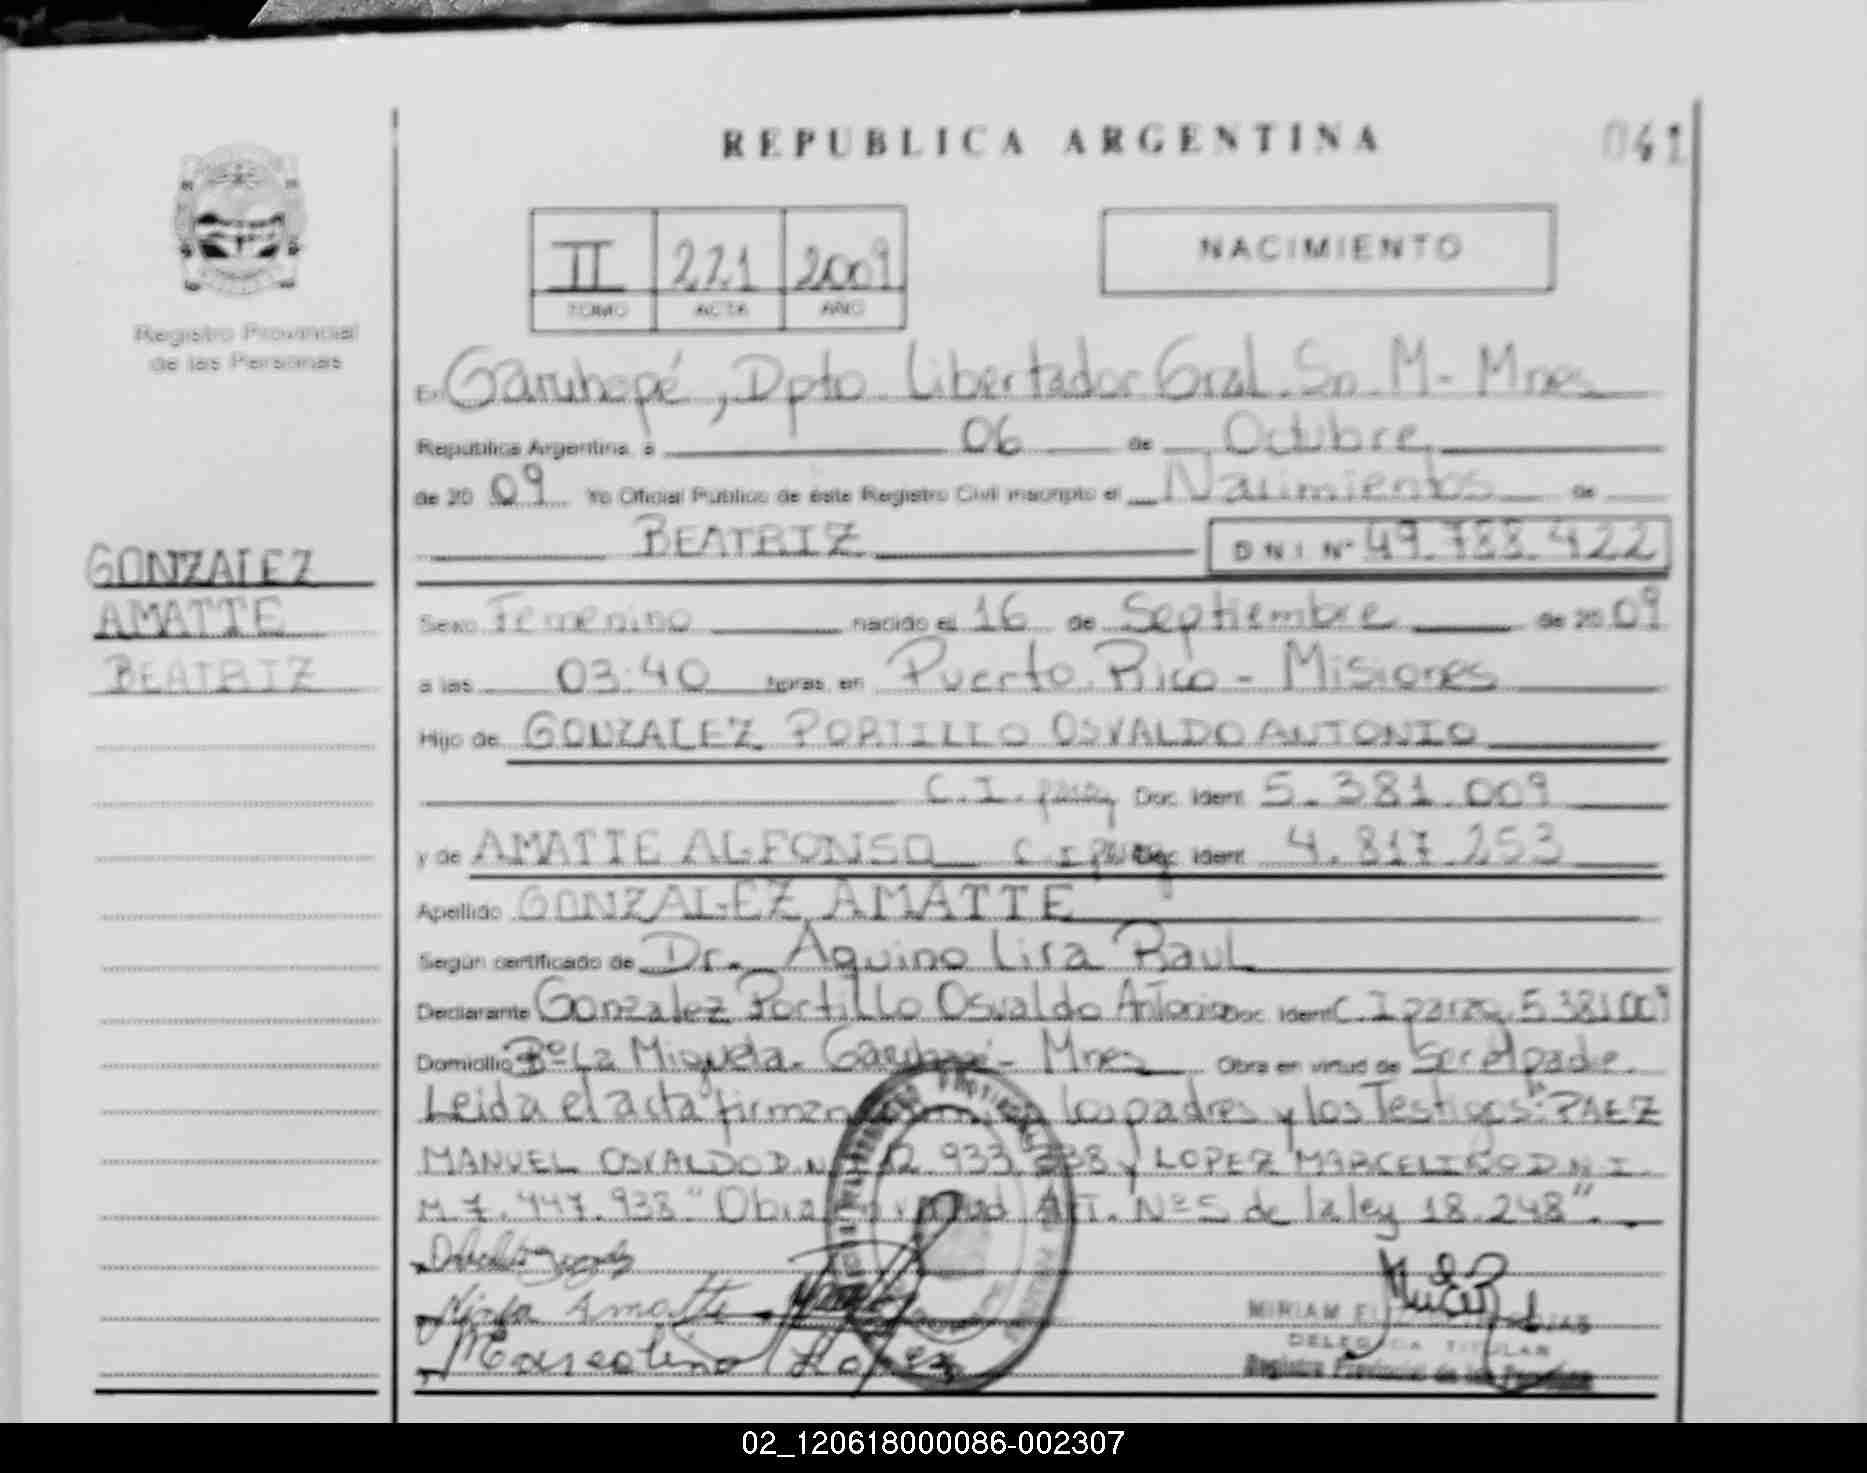 REPUBLICA ARGENTINA
041
Registro Provincial
de las Personas
II 221 2009
TOMO ACTA AÑO
NACIMIENTO
En Garuhapé, Dpto. Libertador Gral. Sn. M - Mnes
República Argentina, a 06 de Octubre
de 20 09 Yo Oficial Público de éste Registro Civil inscripto el Nacimientos de
BEATRIZ DNI Nº 49.788.422
GONZALEZ
AMATTE
BEATRIZ
Sexo Femenino nacido el 16 de Septiembre de 20 09
a las 03:40 horas, en Puerto Rico - Misiones
Hijo de GONZALEZ PORTILLO OSVALDO ANTONIO
C.I. paray Doc. Ident. 5.381.009
y de AMATTE ALFONSO C.I. paray Doc. Ident. 4.817.253
Apellido GONZALEZ AMATTE
Según certificado de Dr. Aquino Lira Raul
Declarante Gonzalez Portillo Osvaldo Antonio Doc. Ident. C.I paray 5.381.009
Domicilio Bº La Miguela - Garuhapé - Mnes Obra en virtud de Ser el padre.
Leida el acta firman los padres y los Testigos": PAEZ
MANUEL OSVALDO D.N. 933 y LOPEZ MARCELINO D.N.I.
M 7.447.938 "Obra en virtud Art. Nº 5 de la ley 18.248".
Ninfa Amatte
Marcelino Lopez
MIRIAM
DELEGADA TITULAR
Registro Provincial de las Personas
02_120618000086-002307